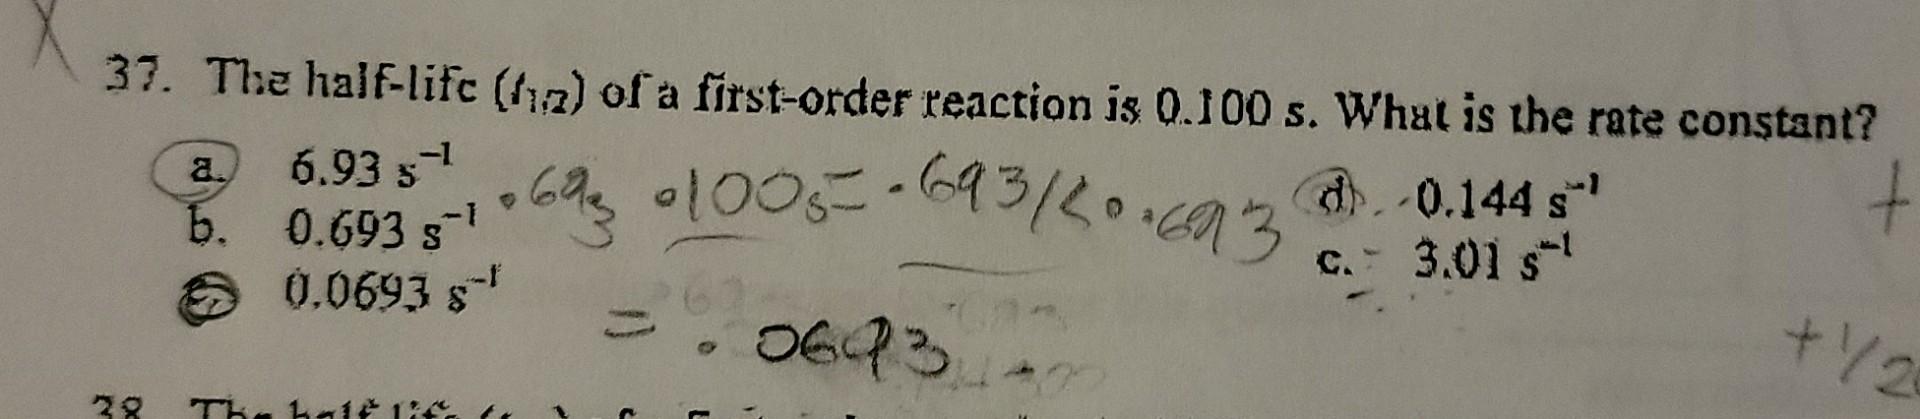 37. The half-life (t1/2) of a first-order reaction is 0.100 s. What is the rate constant?
a. 6.93 s⁻¹
b. 0.693 s⁻¹
0.0693 s⁻¹
.693 .100s = .693/k . .693
= .0693
d. 0.144 s⁻¹
e. 3.01 s⁻¹
+
+1/2
38 The half life